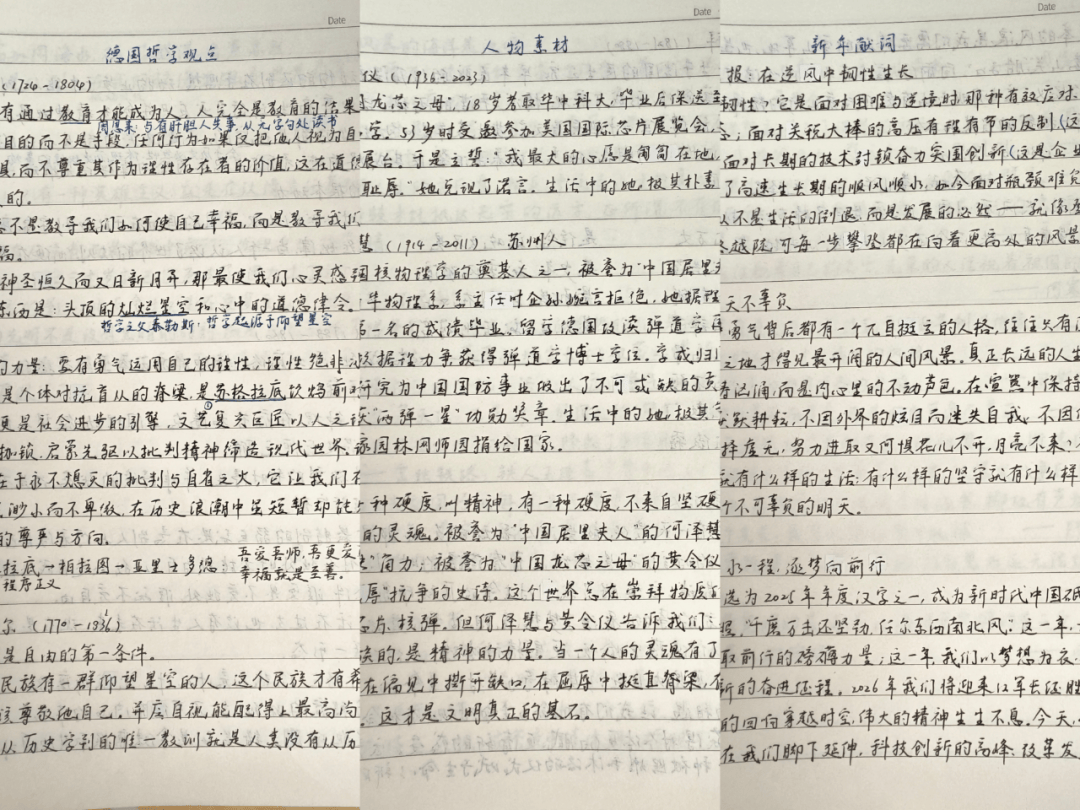 Date
德国哲学观点
(1724-1804)
有通过教育才能成为人，人完全是教育的结果
周恩来：与有肝胆人共事，从无字句处读书
目的而不是手段，任何行为如果仅把他人视为自
具，而不尊重其作为理性存在者的价值，这在道德
的。
不是教导我们如何使自己幸福，而是教导我们
福。
神圣恒久而又日新月异，那最使我们心灵感到
东西是：头顶的灿烂星空和心中的道德律令。
哲学之父泰勒斯：哲学起源于仰望星空
的力量：要有勇气运用自己的理性，理性绝非冰
是个体对抗盲从的脊梁，是苏格拉底饮鸩前
更是社会进步的引擎，文艺复兴巨匠以人之
枷锁，启蒙先驱以批判精神缔造现代世界。
在于永不熄灭的批判与自省之火，它让我们不
渺小而不卑微，在历史浪潮中虽短暂却能
的尊严与方向。
拉底→柏拉图→亚里士多德
程序正义
吾爱吾师，吾更爱
幸福就是至善。
尔（1770-1831）
是自由的第一条件。
民族有一群仰望星空的人，这个民族才有希
该尊敬他自己，并应自视能配得上最高尚
从历史学到的唯一教训就是人类没有从历
Date
人物素材
仪（1936-2023）
龙芯之母，18岁考取华中科大，毕业后保送至
学，53岁时受邀参加美国国际芯片展览会，
展台，于是立誓："我最大的心愿是匍匐在地，
耻辱。"她兑现了诺言。生活中的她，极其朴素
慧（1914-2011） 苏州人
核物理学的奠基人之一，被誉为"中国居里夫
华物理系，系主任叶企孙婉言拒绝，她据理
一名的成绩毕业，留学德国攻读弹道学
以据理力争获得弹道学博士学位。学成归
研究为中国国防事业做出了不可或缺的贡
"两弹一星"功勋奖章。生活中的她，极其
园林网师园捐给国家。
一种硬度，叫精神，有一种硬度，不来自坚硬
的灵魂。被誉为"中国居里夫人"的何泽慧
"角力；被誉为"中国龙芯之母"的黄令仪
辱"抗争的史诗。这个世界总在崇拜物质
芯片、核弹。但何泽慧与黄令仪告诉我们：
的，是精神的力量。当一个人的灵魂有了
在偏见中撕开缺口，在屈辱中挺直脊梁，
这才是文明真正的基石。
Date
新年献词
报：在逆风中韧性生长
韧性？它是面对困难与逆境时，那种有效应对、
；面对关税大棒的高压有理有节的反制（这
面对长期的技术封锁奋力实国创新（这是企业
了高速生长期的顺风顺水，如今面对瓶颈难免
从不是生活的倒退，而是发展的必然——就像
越陡，可每一步攀登都在向着更高处的风景
天不辜负
勇气背后都有一个兀自挺立的人格，往往只有
之地才得见最开阔的人间风景。真正长远的人生
汹涌，而是内心里的不动声色。在喧嚣中保持
默耕耘，不因外界的炫目而迷失自我，不因
择虚无，努力进取又何惧花儿不开，月亮不来。
就有什么样的生活；有什么样的坚守就有什么样
个不可辜负的明天。
水一程，逐梦向前行
选为2025年年度汉字之一，成为新时代中国
"千磨万击还坚劲，任尔东西南北风"，这一年，
取前行的磅礴力量；这一年，我们以梦想为
新的奋进征程。2026年我们将迎来红军长征胜
的回向穿越时空，伟大的精神生生不息。今天，
在我们脚下延伸，科技创新的高峰、改革发